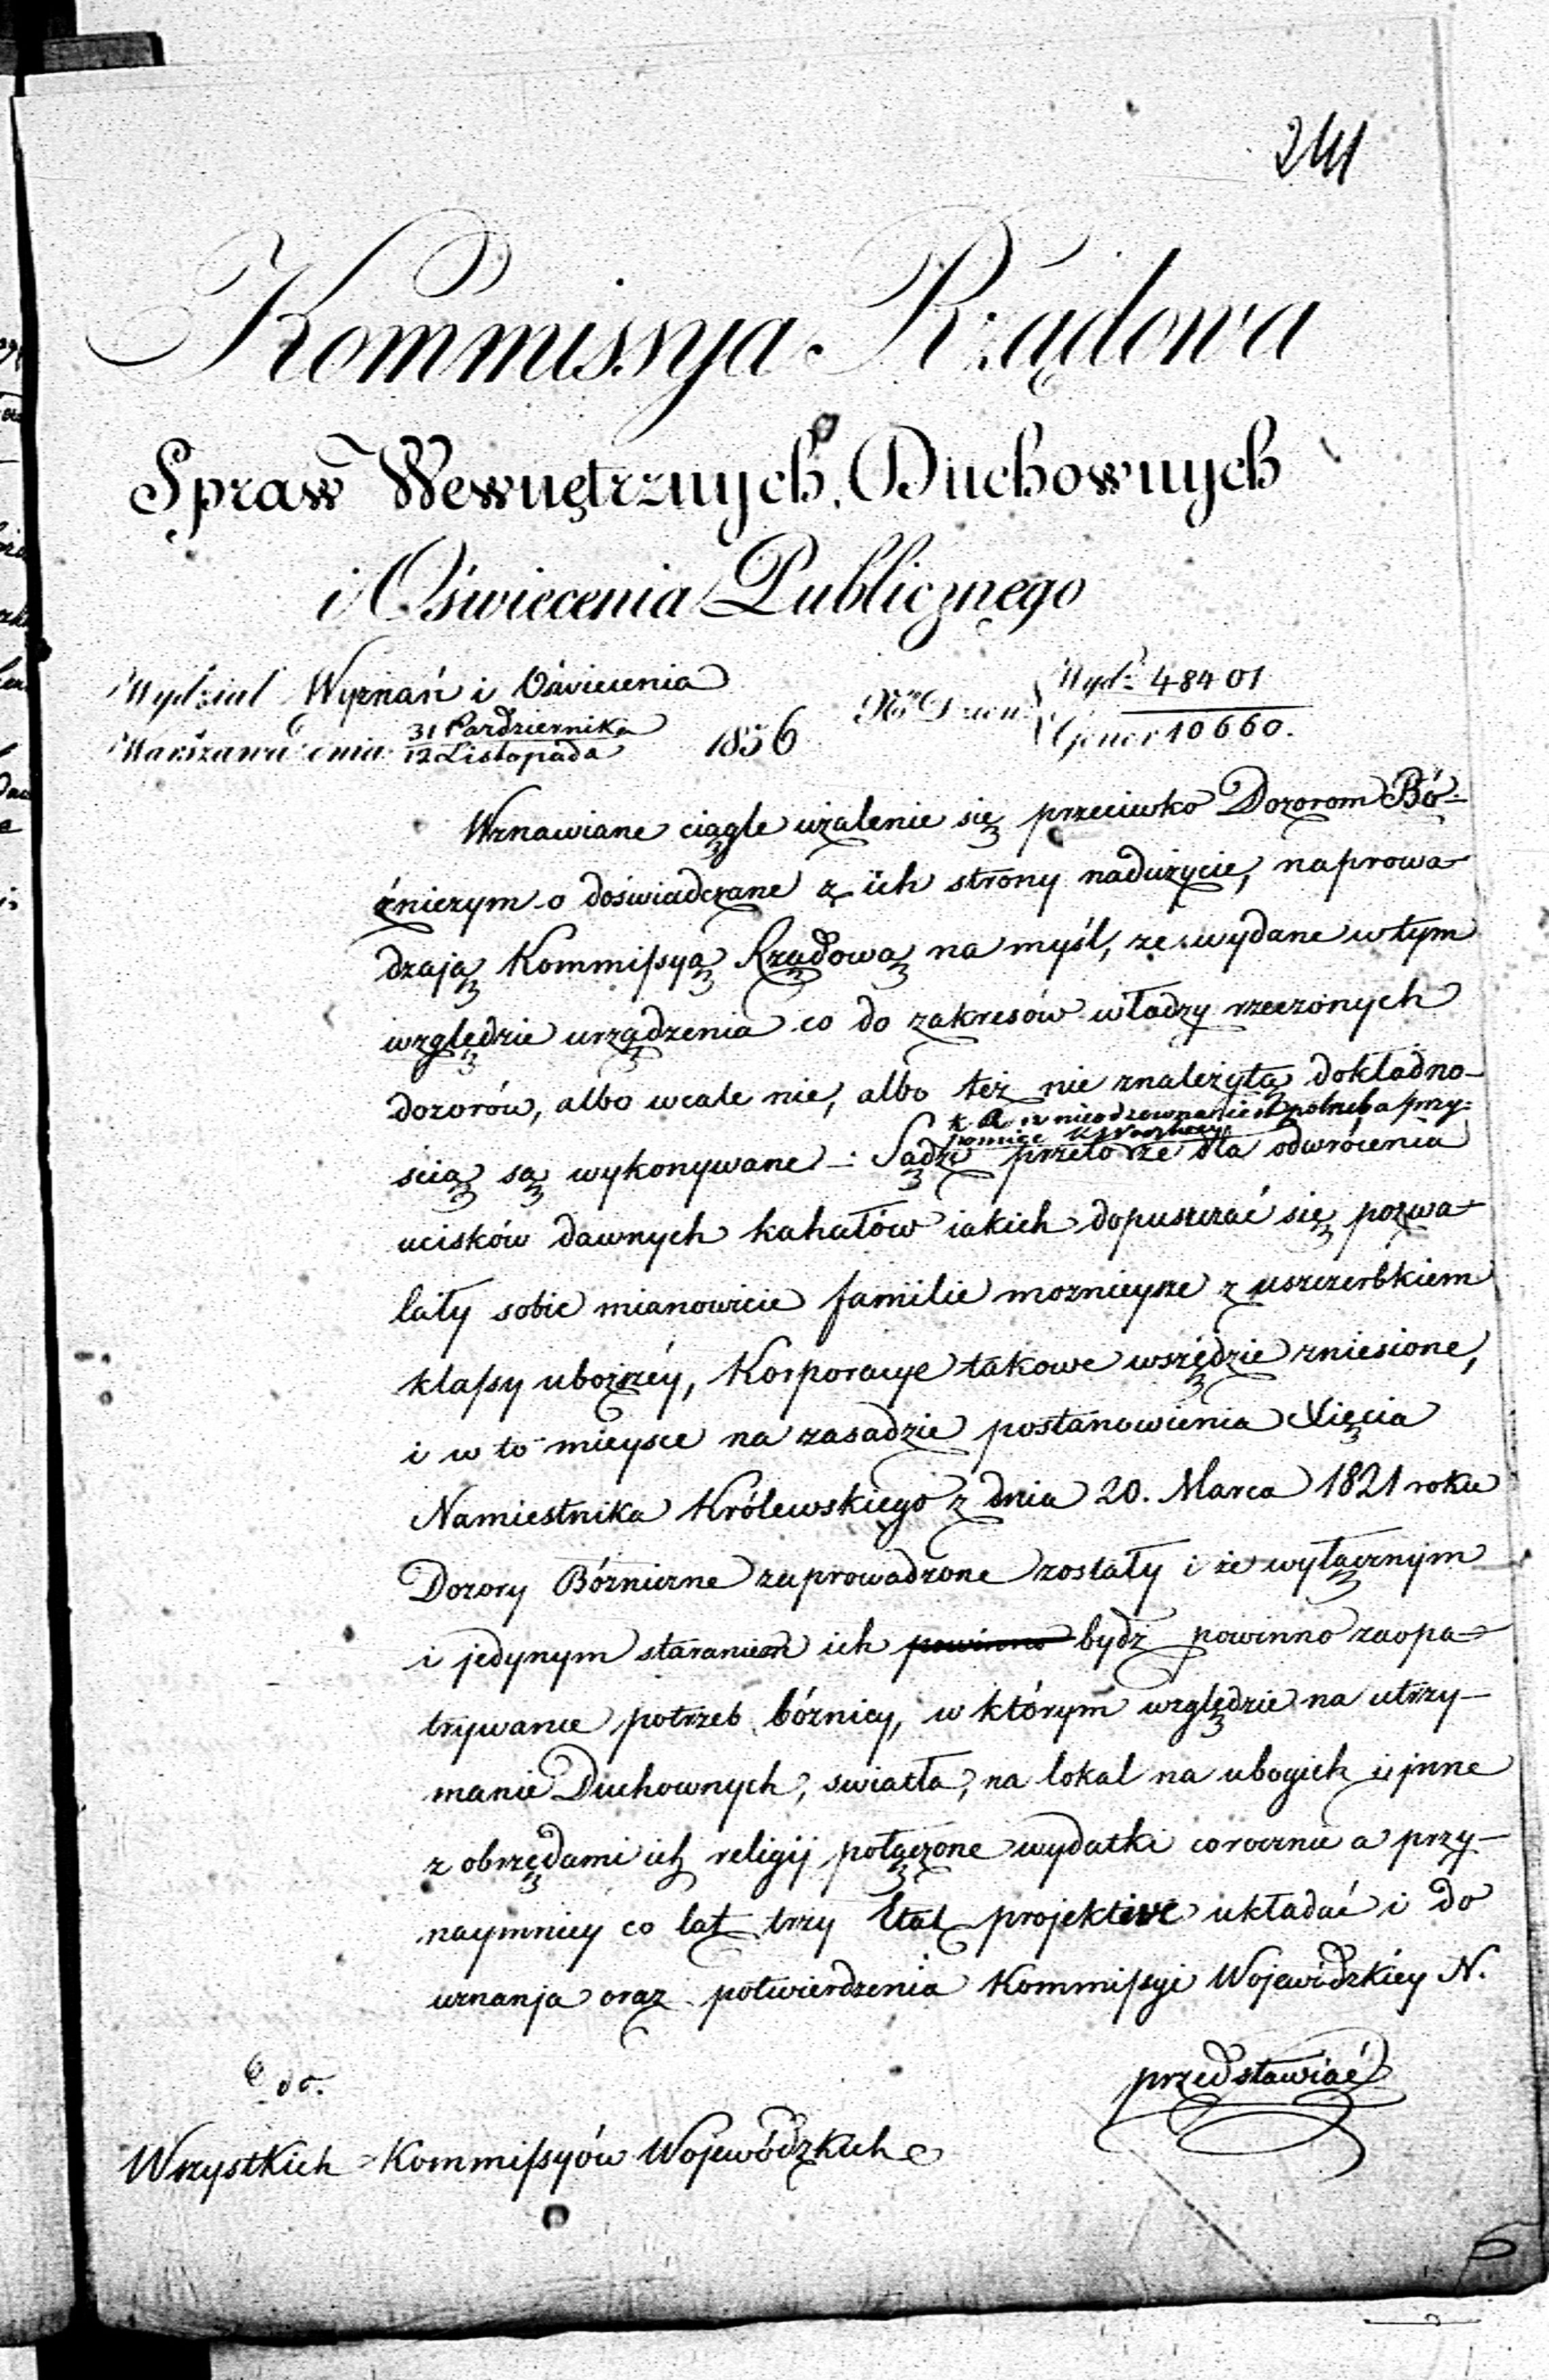 241
Kommissya Rządowa
Spraw Wewnętrznych, Duchownych
i Oświecenia Publicznego
Wydział Wyznań i Oświecenia
Warszawa dnia 31 Pazdziernika / 12 Listopada 1836
Nro Dzien: Wydł: 48401
Gener 10660.
Wznawiane ciągle użalenie się przeciwko Dozorom Bó-
źniczym o doświadczane z ich strony nadużycie, naprowa-
dzają Kommissyą Rządową na myśl, ze wydane w tym
względzie urządzenia co do zakresów władzy rzeczonych
dozorów, albo wcale nie, albo też nie znależytą dokładno-
ścią są wykonywane -: Sądzi przeto że dla odwrócenia
iż nieodzowna jest potrzeba przy-
pomnieć K. Woiewódz:
ucisków dawnych kahałów iakich dopuszczać się pozwa-
lały sobie mianowicie familie moznieysze z uszczerbkiem
klassy uboższéy, Korporacye takowe wszędzie zniesione,
i w to mieysce na zasadzie postanowienia Xięcia
Namiestnika Królewskiego z dnia 20. Marca 1821 roku
Dozory Bóżnicze zaprowadzone zostały i że wyłącznym
i jedynym staraniem ich powinno bydź powinno zaopa-
trywanie potrzeb bóżnicy, w którym względzie na utrzy-
manie Duchownych, swiatła, na lokal na ubogich i jnne
z obrzędami ich religij połączone wydatki corocznie a przy-
naymniey co lat trzy Etat projektive układać i do
uznanja oraz potwierdzenia Kommissyi Wojewódzkiéy N.
przedstawiać
do.
Wszystkich Kommissyów Wojewódzkich